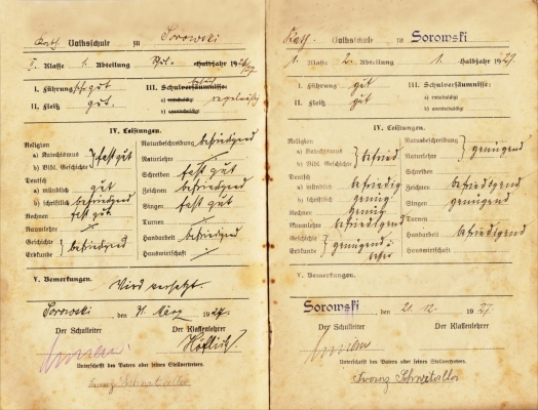 Kath. Volksschule zu Sorowski
I. Klasse 1. Abteilung Halbjahr 192
I. Führung: s. gut III. Schulversäumnisse:
II. Fleiß gut. a) entschuldigt regelmäßig
b) unentschuldigt
IV. Leistungen.
Religion Naturbeschreibung befriedigend
a) Katechismus } fast gut Naturlehre
b) Bibl. Geschichte Schreiben fast gut
Deutsch Zeichnen befriedigend
a) mündlich gut Singen fast gut
b) schriftlich befriedigend Turnen
Rechnen fast gut. Handarbeit befriedigend
Raumlehre Hauswirtschaft
Geschichte } befriedigend
Erdkunde
V. Bemerkungen.
Wird versetzt.
Sorowski, den 31. März 1927.
Der Schulleiter Der Klassenlehrer
Höflich
Unterschrift des Vaters oder seines Stellvertreters.
Franz
Kath. Volksschule zu Sorowski
1. Klasse 2. Abteilung 1. Halbjahr 1927.
I. Führung gut III. Schulversäumnisse:
II. Fleiß gut a) entschuldigt
b) unentschuldigt
IV. Leistungen.
Religion Naturbeschreibung } genügend
a) Katechismus } befried Naturlehre
b) Bibl. Geschichte Schreiben
Deutsch Zeichnen befriedigend
a) mündlich befriedig Singen genügend
b) schriftlich genüg Turnen
Rechnen genüg Handarbeit befriedigend
Raumlehre befriedigend Hauswirtschaft
Geschichte } genügend
Erdkunde
V. Bemerkungen.
Sorowski, den 20. 12. 1927.
Der Schulleiter Der Klassenlehrer
Unterschrift des Vaters oder seines Stellvertreters.
Franz